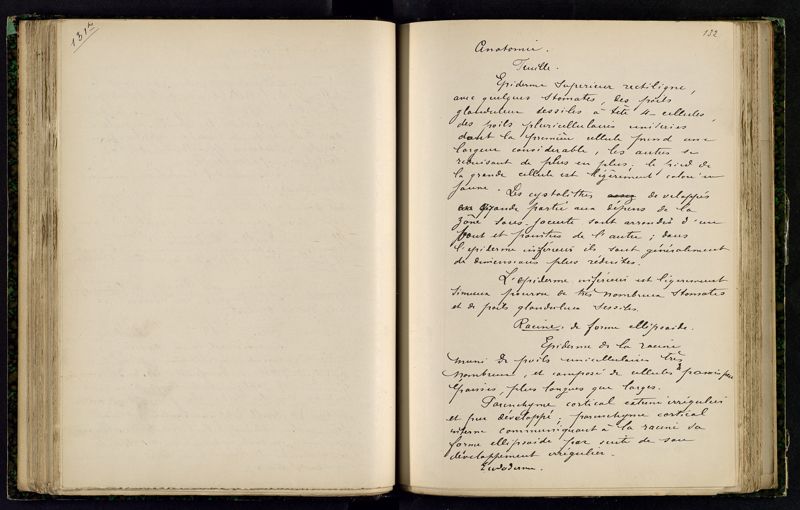 131 bis
132
Anatomie.
Feuille.
Epiderme superieur rectiligne,
avec quelques stomates, des poils
glanduleux sessiles à tête 4-cellules,
des poils pluricellulaires uniseries
dont la première cellule prend une
largeur considerable, les autres se
reduisant de plus en plus; le pied de
la grande cellule est légèrement coloré en
jaune. Les cystolithes developpés
en grande partie aux dépens de la
zône sous-jacente sont arrondis d'un
bout et pointus de l'autre; dans
l'epiderme inférieur ils sont généralement
de dimensions plus réduites.
L'epiderme inférieur est ligerement
sinueux pourvu de très nombreux stomates
et de poils glanduleux sessiles.
Racine: de forme ellipsoide.
Epiderme de la racine
muni de poils unicellulaires très
nombreux, et composé de cellules à parois peu
épaisses, plus longues que larges.
Parenchyme cortical externe irrégulier
et peu développé; parenchyme cortical
interne communiquant à la racine sa
forme ellipsoide par suite de son
développement irrégulier.
Endoderme.